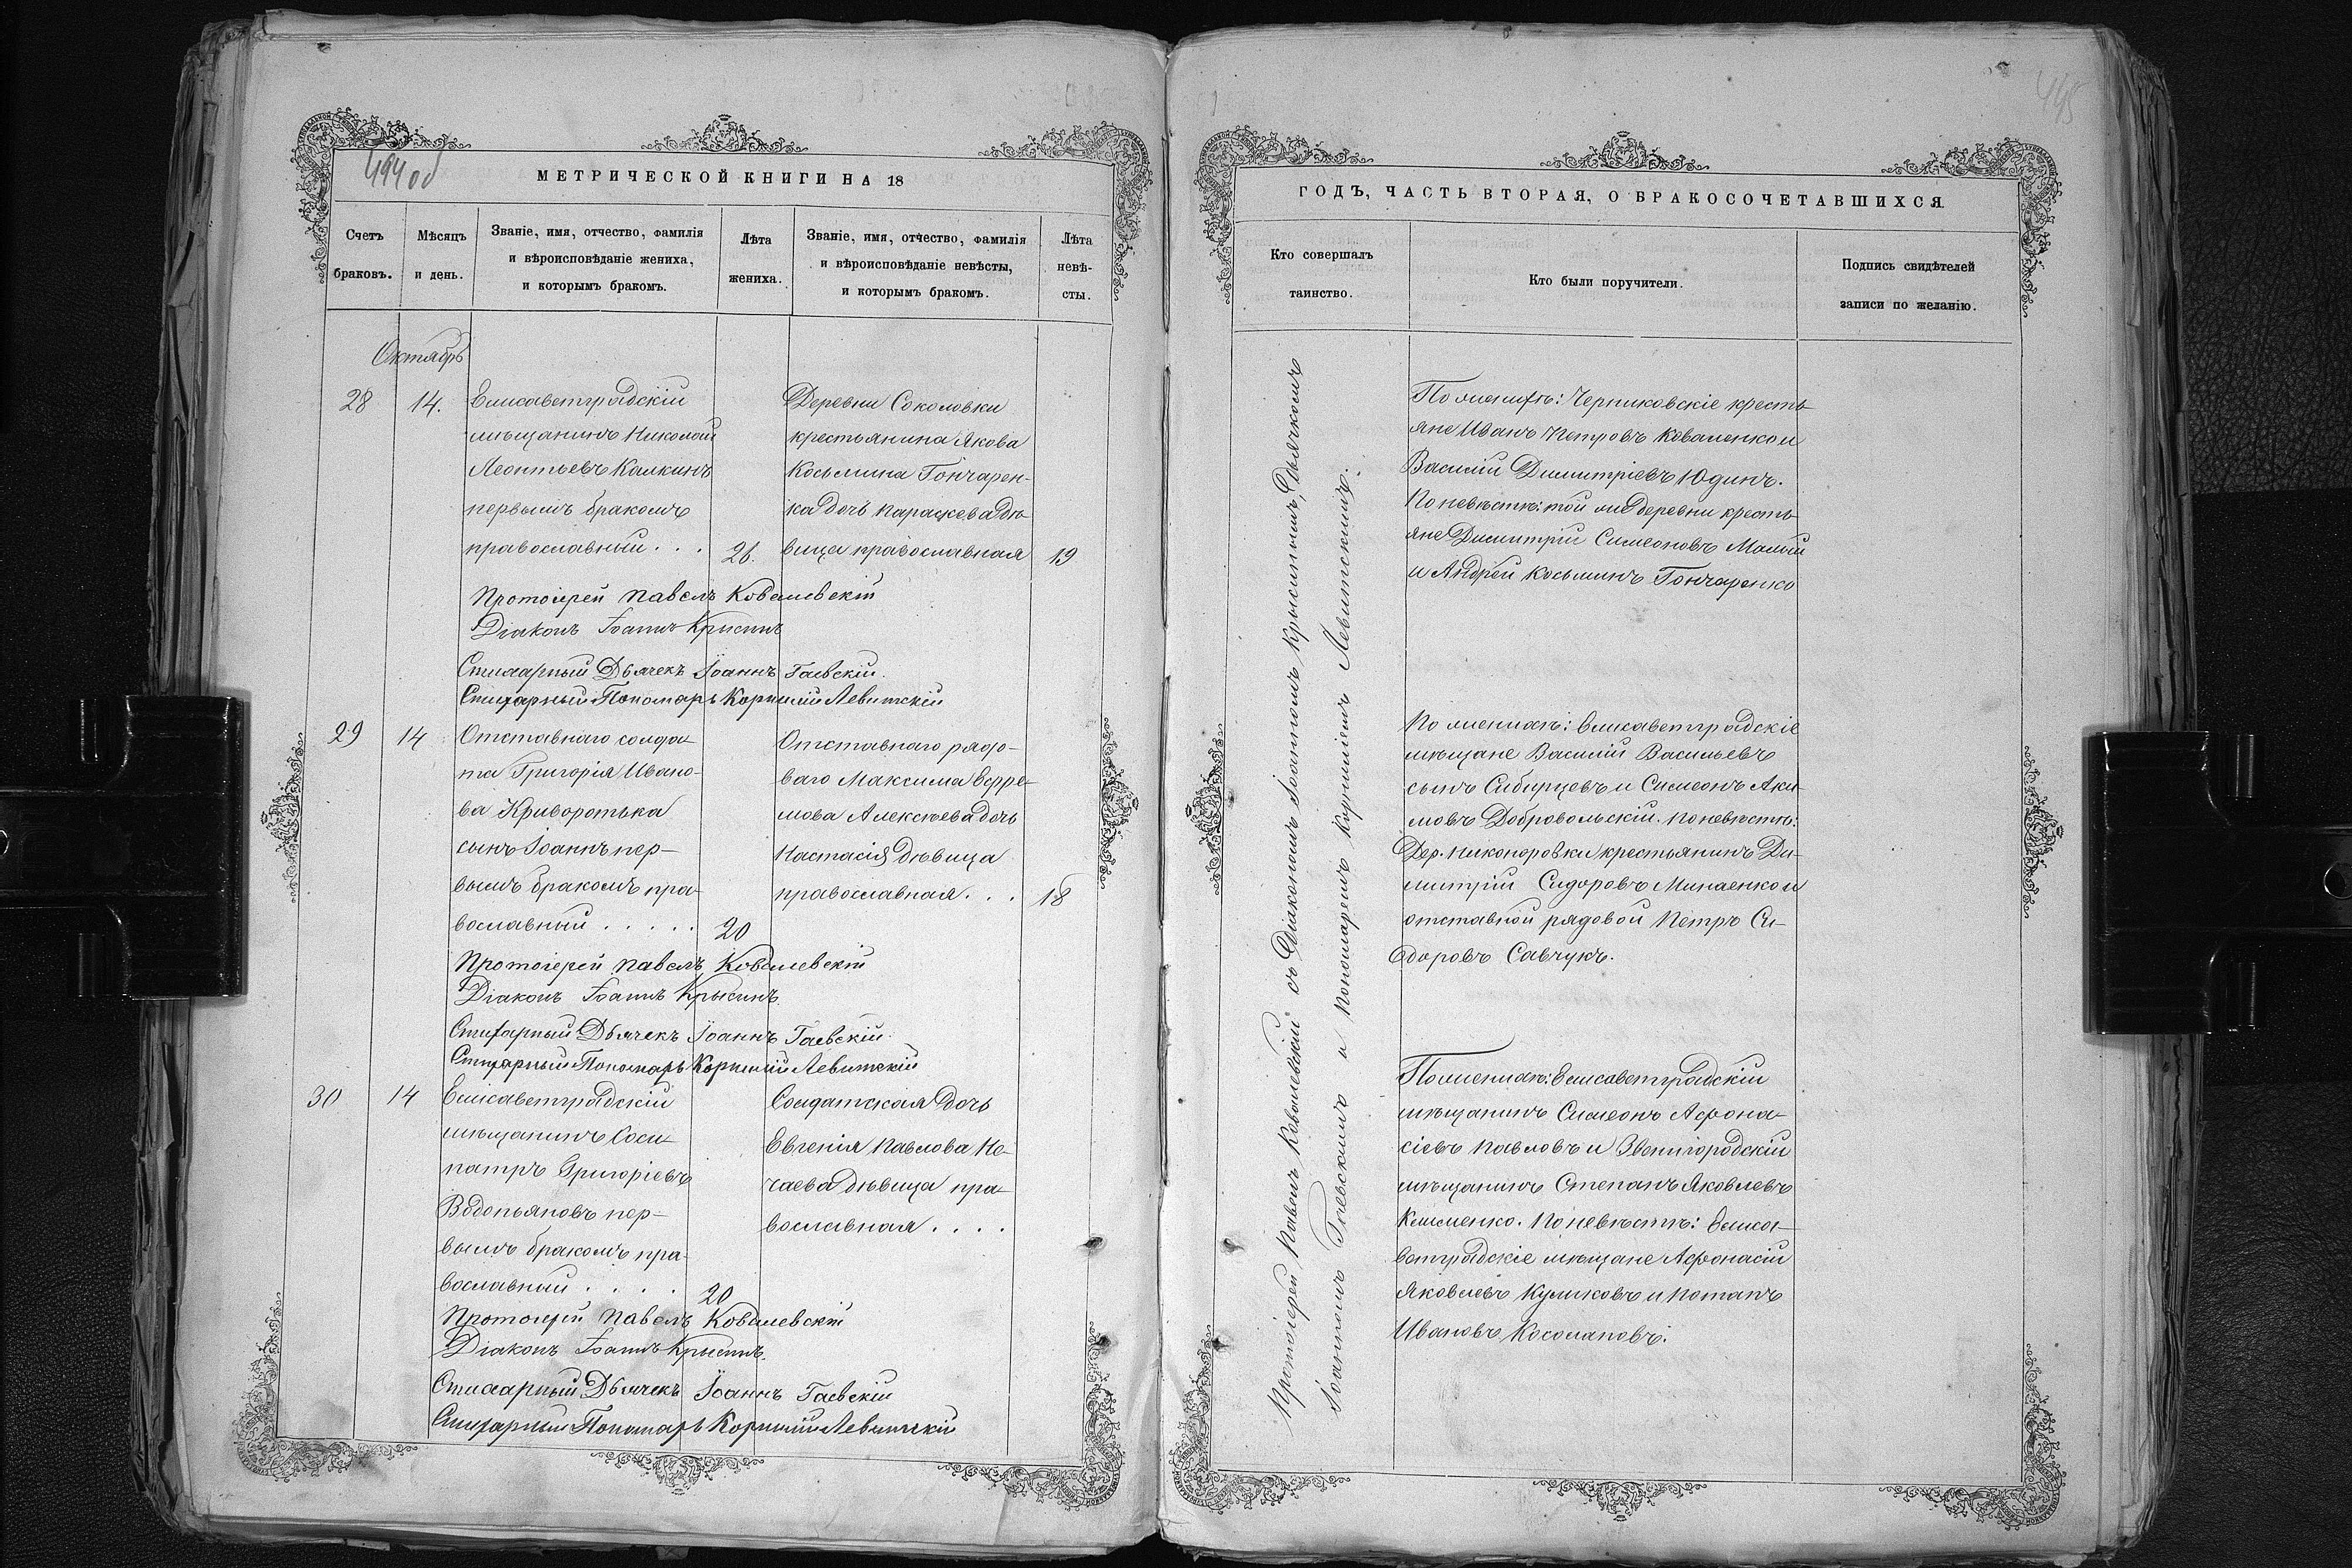 494 об
МЕТРИЧЕСКОЙ КНИГИ НА 18
Счетъ
браковъ.
Мѣсяцъ
и день.
Званіе, имя, отчество, фамилія
и вѣроисповѣданіе жениха,
и которымъ бракомъ.
Лѣта
жениха.
Званіе, имя, отчество, фамилія
и вѣроисповѣданіе невѣсты,
и которымъ бракомъ.
Лѣта
невѣ-
сты.
Октябрь
28
14.
Елисаветградскій
мѣщанинъ Николай
Леонтьевъ Калкинъ
первымъ бракомъ
православный . . .
26.
Деревни Соколовки
крестьянина Якова
Косьмина Гончарен-
ка дочь Параскева дѣ-
вица православная
19
Протоіерей Павелъ Ковалевскій
Діаконъ Іоаннъ Крысинъ
Стихарный Дьячекъ Іоаннъ Гаевскій.
Стихарный Пономарь Корнилій Левитскій
29
14
Отставнаго солда-
та Григорія Ивано-
ва Криворотька
сынъ Іоаннъ пер-
вымъ бракомъ пра-
вославный . . . . .
20
Отставнаго рядо-
ваго Максима Ефре-
мова Алексѣева дочь
Настасія дѣвица
православная . . .
18
Протоіерей Павелъ Ковалевскій
Діаконъ Іоаннъ Крысинъ.
Стихарный Дьячекъ Іоаннъ Гаевскій.
Стихарный Пономарь Корнилій Левитскій
30
14
Елисаветградскій
мѣщанинъ Соси-
патръ Григоріевъ
Водопьяновъ пер-
вымъ бракомъ пра-
вославный . . . .
20
Солдатская дочь
Евгенія Павлова Не-
чаева дѣвица пра-
вославная . . . .
Протоіерей Павелъ Ковалевскій
Діаконъ Іоаннъ Крысинъ.
Стихарный Дьячекъ Іоаннъ Гаевскій
Стихарный Пономарь Корнилій Левитскій
495
ГОДЪ, ЧАСТЬ ВТОРАЯ, О БРАКОСОЧЕТАВШИХСЯ.
Кто совершалъ
таинство.
Кто были поручители.
Подпись свидѣтелей
записи по желанію.
Протоіерей Павелъ Ковалевскій съ Діакономъ Іоанномъ Крысинымъ, Дьячкомъ
Іоанномъ Гаевскимъ и Пономаремъ Корниліемъ Левитскимъ.
По женихѣ: Черниковскіе кресть-
яне Иванъ Петровъ Коваленко и
Василій Димитріевъ Юдинъ.
По невѣстѣ: той же деревни кресть-
яне Димитрій Симеоновъ Малый
и Андрей Косьминъ Гончаренко
По женихѣ: Елисаветградскіе
мѣщане Василій Васильевъ
сынъ Сибирцевъ и Симеонъ Аки-
мовъ Добровольскій. По невѣстѣ:
Дер. Никоноровки крестьянинъ Ди-
митрій Сидоровъ Минаенко и
отставной рядовой Петръ Си-
доровъ Савчукъ.
По женихѣ: Елисаветградскій
мѣщанинъ Симеонъ Афона-
сіевъ Павловъ и Звенигородскій
мѣщанинъ Степанъ Яковлевъ
Клименко. По невѣстѣ: Елиса-
ветградскіе мѣщане Афонасій
Яковлевъ Куликовъ и Потапъ
Ивановъ Косолаповъ.